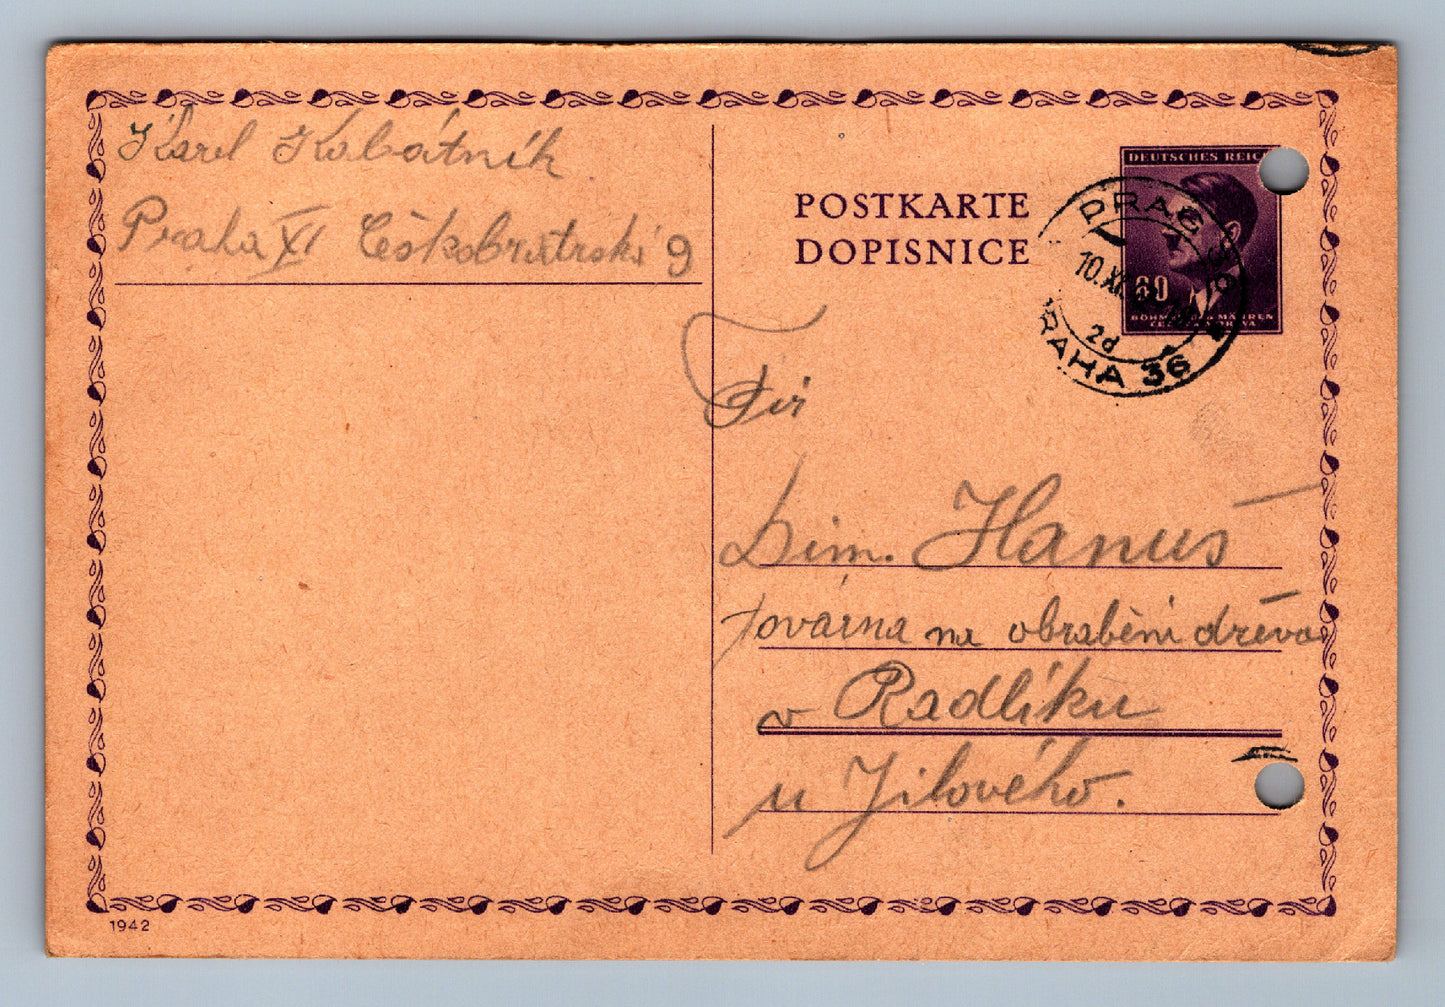 Karel Kabátník
Praha XI Českobratrská 9
POSTKARTE
DOPISNICE
DEUTSCHES REICH
60
BÖHMEN UND MÄHREN
PRAG 36
10.XI.
2d
PRAHA 36
Fir
Sim. Hanuš
továrna na obrabění dřeva
v Radlíku
u Jílového.
1942